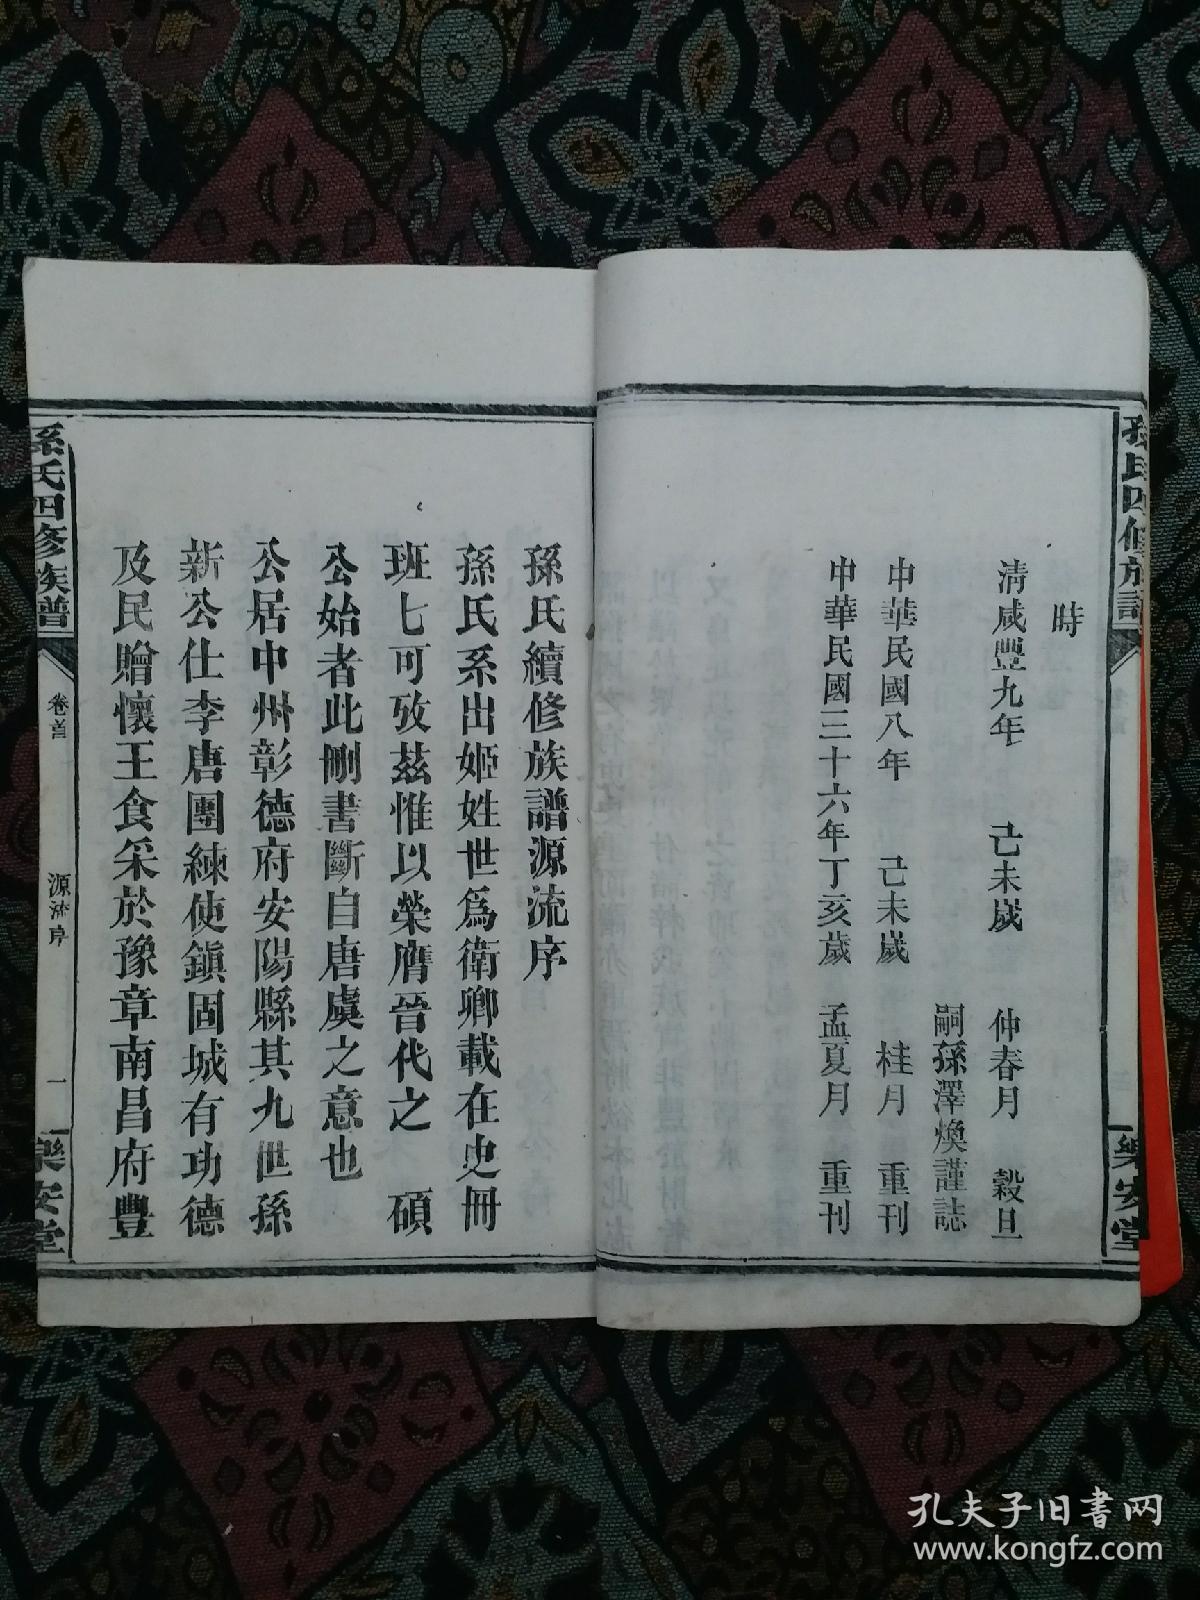 孫氏四修族譜
時
清咸豐九年 己未歲 仲春月 穀旦
嗣孫澤煥謹誌
中華民國八年 己未歲 桂月 重刊
中華民國三十六年丁亥歲 孟夏月 重刊
樂安堂
孫氏續修族譜源流序
孫氏系出姬姓世爲衛卿載在史冊
班七可攷茲惟以榮膺晉代之 碩
公始者此刪書斷自唐虞之意也
公居中州彰德府安陽縣其九世孫
新公仕李唐團練使鎭固城有功德
及民贈懷王食采於豫章南昌府豐
孫氏四修族譜
卷首
源流序
一
樂安堂
孔夫子旧书网
www.kongfz.com